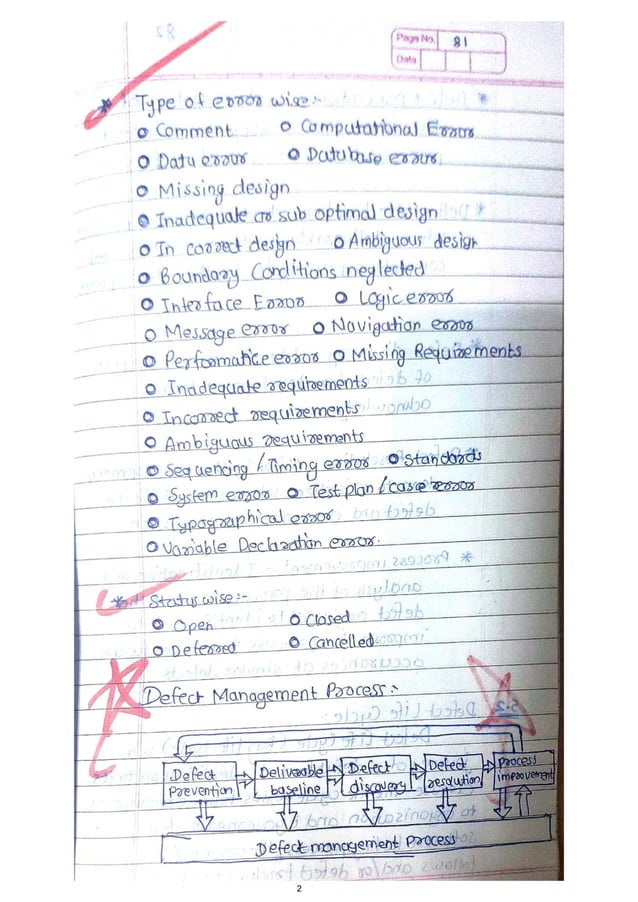 Page No. 81
Date
* Type of error wise:-
o Comment o Computational Error
o Data error o Database error
o Missing design
o Inadequate or sub optimal design
o In correct design o Ambiguous design
o Boundary Conditions neglected
o Interface Error o Logic error
o Message error o Navigation error
o Performance error o Missing Requirements
o Inadequate requirements
o Incorrect requirements
o Ambiguous requirements
o Sequencing / Timing error o Standards
o System error o Test plan / case error
o Typographical error
o Variable Declaration error.
* Status wise:-
o Open o Closed
o Deferred o Cancelled
Defect Management Process:-
Defect Prevention
Deliverable baseline
Defect discovery
Defect resolution
Process improvement
Defect management process
2